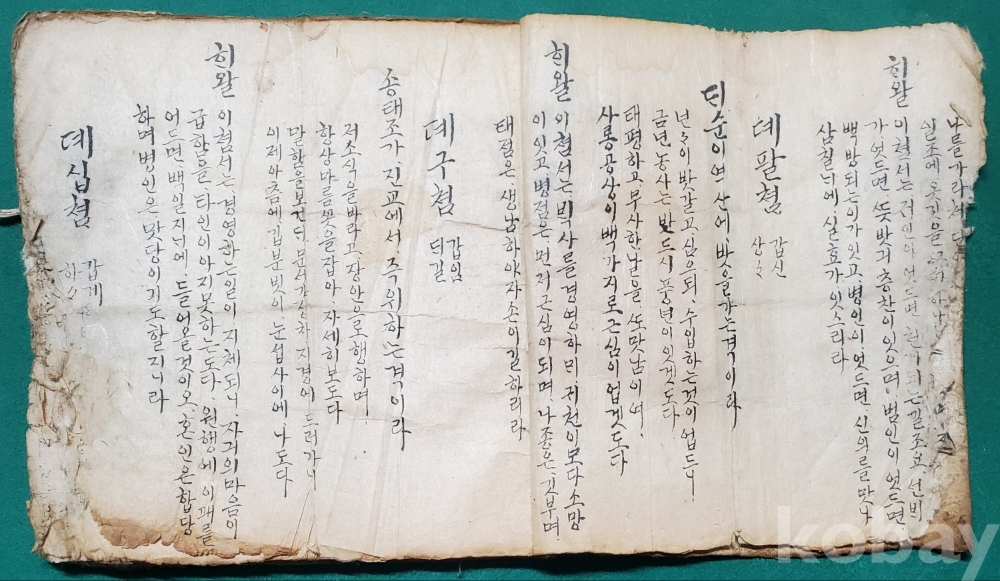 나를가라쳐
일조에
희왈
이첨서는 귀인이 엇드면
가 엇드면 뜻밧긔 총찬이 잇으며 범인이 엇드면
백방되는이가 잇고 병인이 엇드면 신의를 맛나
삼칠닉에 실효가 잇스리라
뎨팔첨 갑신
상
뎌순이 역산에 밧을 가는 격이라
년々이 밧갈고 심으되 수입하는것이 업드니
금년 농사는 반드시 풍년이 잇겟도다
태평하고 무사한날을 또 맛남이여
사롱공상이 백가지로 근심이 업겟도다
희왈 이첨서는 빅사를 경영하미 제천인보다 소망
이 잇고 병점은 먼저 근심이 되며 나종은 깃부며
태점은 생남하야 자손이 길하리라
뎨구첨 갑임
듸길
송태조가 진교에서 즉위하는 격이라
저 소식을 바라고 장안으로 행하며
항상 마름 붓을 잡아 자세히 보도다
말함을 보건듸 문씨가 장차 지경에 드러가니
이제 아츰에 깁분빗이 눈섭사이에 나도다
희왈 이첨서는 경영하는일이 지체되니 자긔의 마음이
급함을 타인이 아지못하는도다 원행에 이패를
어드면 백일지닉에 들어올것이오 혼인은 합당
하며 병인은 맛당이 기도할지니라
뎨십첨 갑계
하
kobay